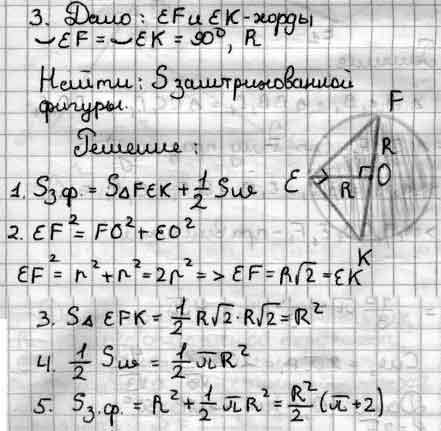 3. Дано: EF и EK-хорды
◡EF = ◡EK = 90°, R
Найти: S заштрихованной
фигуры.
Решение:
F
E
R
R
O
K
1. Sз.ф. = S△FEK + 1/2 Sш
2. EF² = FO² + EO²
EF² = r² + r² = 2r² => EF = R√2 = EK
3. S△ EFK = 1/2 R√2 · R√2 = R²
4. 1/2 Sш = 1/2 πR²
5. Sз.ф. = R² + 1/2 πR² = R²/2 (π + 2)